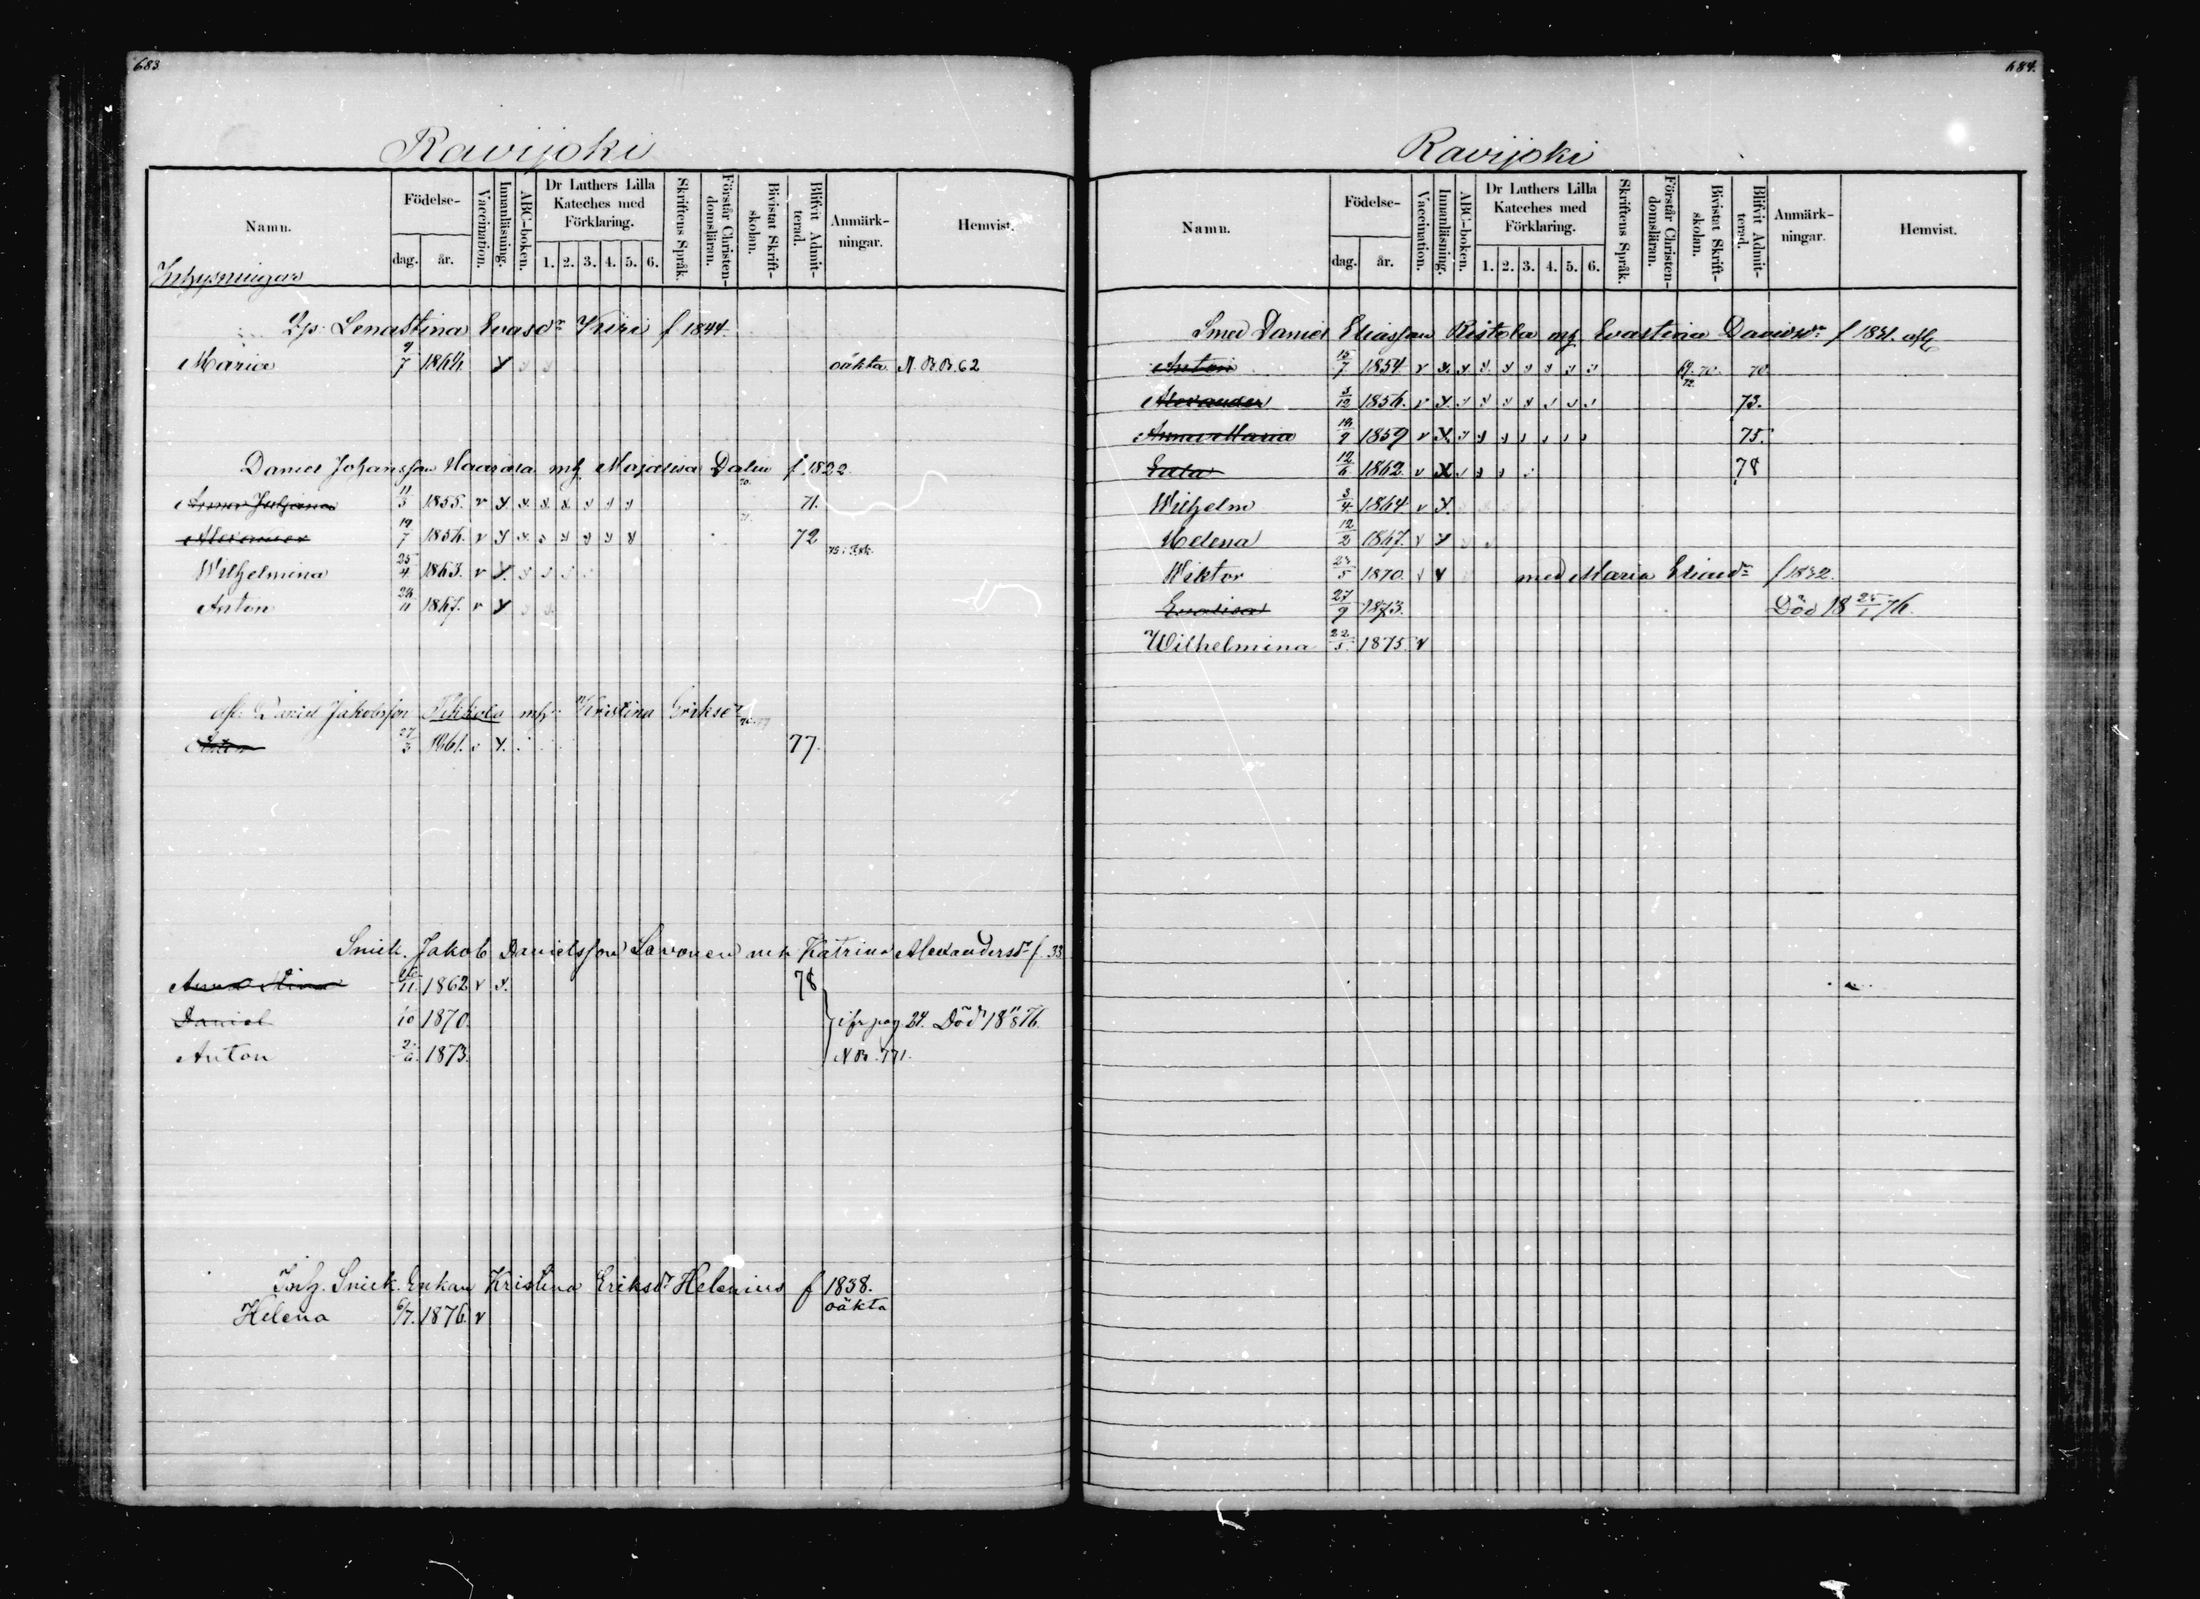 683.
Ravijoki
Namn.
Födelse-
dag. år.
Vaccination.
Innanläsning.
ABC-boken.
Dr Luthers Lilla
Kateches med
Förklaring.
1. 2. 3. 4. 5. 6.
Skriftens Språk.
Förstår Christen-
domsläran.
Bivistat Skrift-
skolan.
Blifvit Admit-
terad.
Anmärk-
ningar.
Hemvist.
Inhysningar
Lenastina Evasdr Kiiri f 1844.
Maria 9/7 1864. oäkta N.B.B. 62
Daniel Johansson Haarala mh Majalisa Dalin f. 1822
Anna Juliana 11/3 1855. v 71.
Alexander 19/7 1856. v 72
Wilhelmina 25/4 1863. v
Anton 24/11 1867. v
afl. Daniel Jakobsson Pikkola mh Kristina Eriksdr
Anton 27/3 1861. v 77.
Snick. Jakob Danielsson Savonen mh Katrina Alexandersdr f. 33
Anna Stina 1862 v 78
Daniel 1870. pag 24. Död 18 11/8 76.
Anton 1873. N B. 771.
Inh. Snick. Enkan Kristina Eriksdr Helenius f 1838.
Helena 6/7. 1876. v oäkta
684.
Ravijoki
Namn.
Födelse-
dag. år.
Vaccination.
Innanläsning.
ABC-boken.
Dr Luthers Lilla
Kateches med
Förklaring.
1. 2. 3. 4. 5. 6.
Skriftens Språk.
Förstår Christen-
domsläran.
Bivistat Skrift-
skolan.
Blifvit Admit-
terad.
Anmärk-
ningar.
Hemvist.
Smed Daniel Eliasson Ristola mh Evastina Danielsdr f 1831. afl
Anton 15/7 1854 v 69. 70. 70
Alexander 3/12 1856. v 72. 73.
Anna Maria 19/9 1859 v 75.
12/6 1862. v 78
Wilhelm 3/4 1864 v
Helena 12/2 1867. v
Wiktor 23/5 1870. v med Maria Eliasdr f 1832.
Evalisa 27/9 1873. Död 18 25/1 76.
Wilhelmina 22/5 1875 v